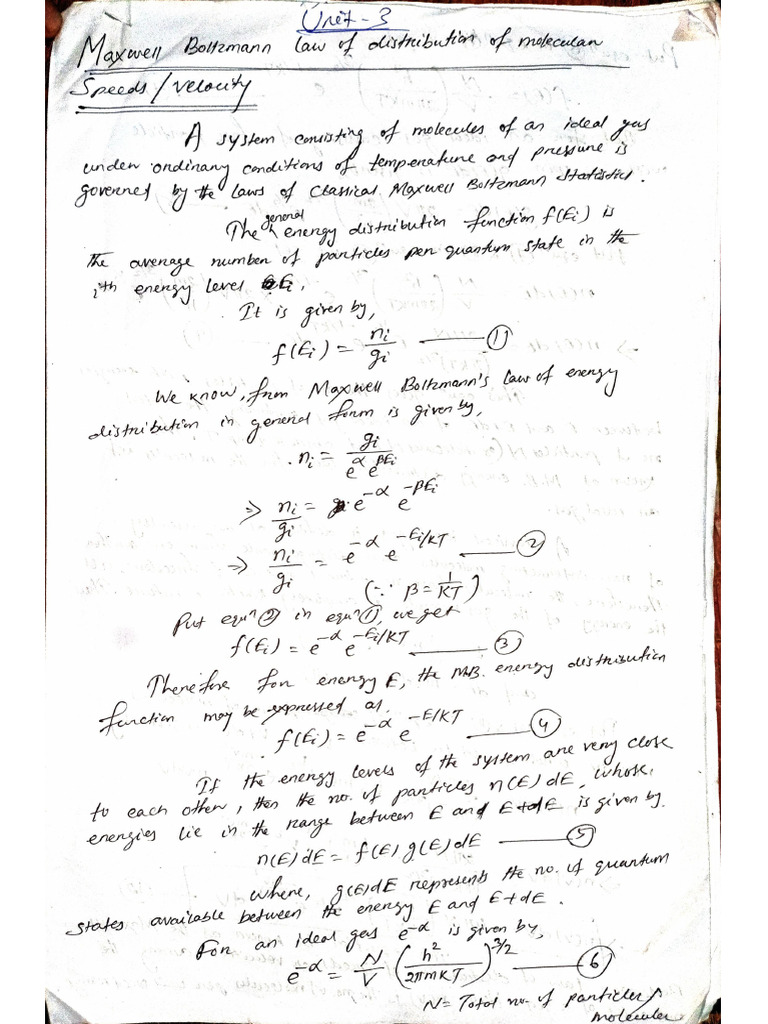 Unit-3
Maxwell Boltzmann law of distribution of molecular
Speeds/velocity
A system consisting of molecules of an ideal gas
under ordinary conditions of temperature and pressure is
governed by the laws of Classical Maxwell Boltzmann Statistics.
The general energy distribution function f(Ei) is
the average number of particles per quantum state in the
ith energy level Ei.
It is given by,
f(Ei) = ni/gi ——— ①
We know, from Maxwell Boltzmann's law of energy
distribution in general form is given by,
ni = gi/(e^α e^βEi)
⇒ ni/gi = e^-α e^-βEi
⇒ ni/gi = e^-α e^-Ei/KT ——— ②
(∵ β = 1/KT)
Put equⁿ ② in equⁿ ①, we get
f(Ei) = e^-α e^-Ei/KT ——— ③
Therefore for energy E, the M.B. energy distribution
function may be expressed as,
f(Ei) = e^-α e^-E/KT ——— ④
If the energy levels of the system are very close
to each other, then the no. of particles n(E)dE, whose
energies lie in the range between E and E+dE is given by
n(E)dE = f(E) g(E)dE ——— ⑤
where, g(E)dE represents the no. of quantum
states available between the energy E and E+dE.
For an ideal gas e^-α is given by,
e^-α = N/V (h²/2πmKT)^3/2 ——— ⑥
N = Total no. of particles/
molecules